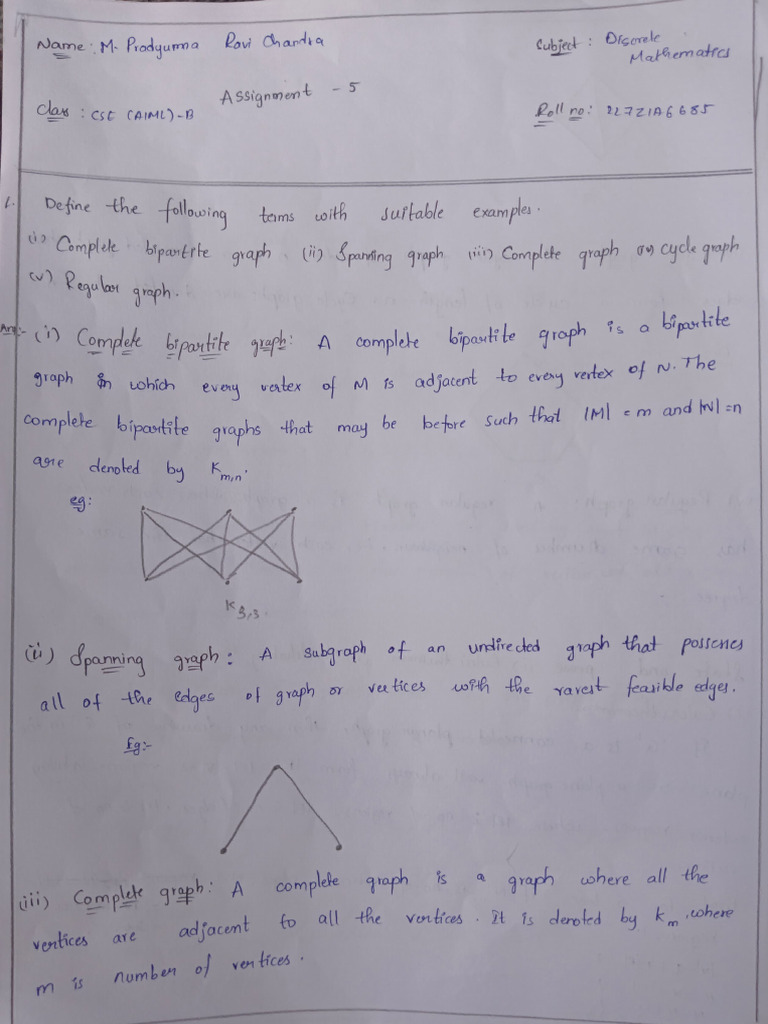 Name: M. Pradyumna Ravi Chandra
Subject: Discrete Mathematics
Assignment - 5
Class: CSE (AIML)-B
Roll no: 22721A6685
1. Define the following terms with suitable examples.
(i) Complete bipartite graph (ii) Spanning graph (iii) Complete graph (iv) cycle graph
(v) Regular graph.
Ans:- (i) Complete bipartite graph: A complete bipartite graph is a bipartite
graph in which every vertex of M is adjacent to every vertex of N. The
complete bipartite graphs that may be before such that |M| = m and |N| = n
are denoted by Km,n.
eg:
K3,3.
(ii) Spanning graph: A subgraph of an undirected graph that possenes
all of the edges of graph or vertices with the rarest feasible edges.
Eg:-
(iii) Complete graph: A complete graph is a graph where all the
vertices are adjacent to all the vertices. It is denoted by km, where
m is number of vertices.